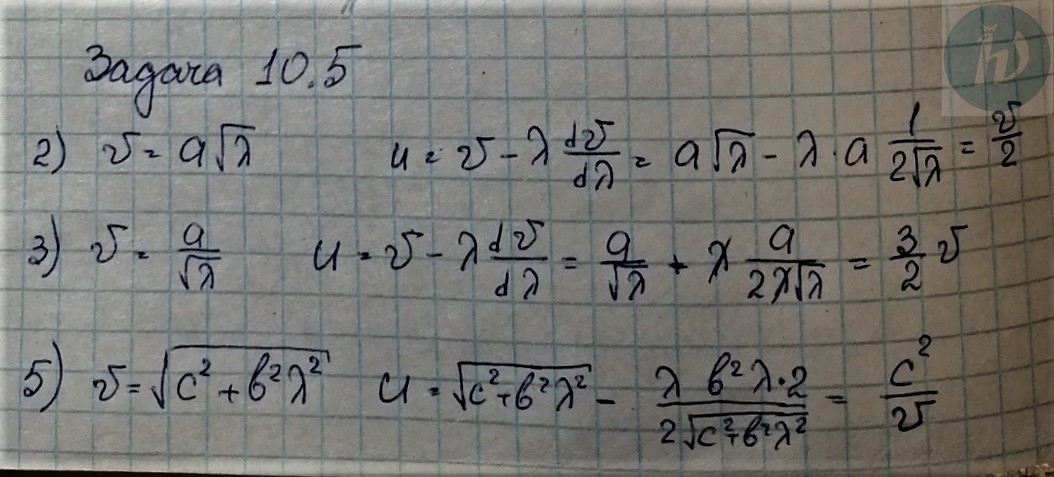 Задача 10.5
2) v = a√λ u = v - λ dv/dλ = a√λ - λ · a 1/(2√λ) = v/2
3) v = a/√λ u = v - λ dv/dλ = a/√λ + λ a/(2λ√λ) = 3/2 v
5) v = √(c² + b²λ²) u = √(c² + b²λ²) - (λ b² λ · 2)/(2√(c² + b²λ²)) = c²/v